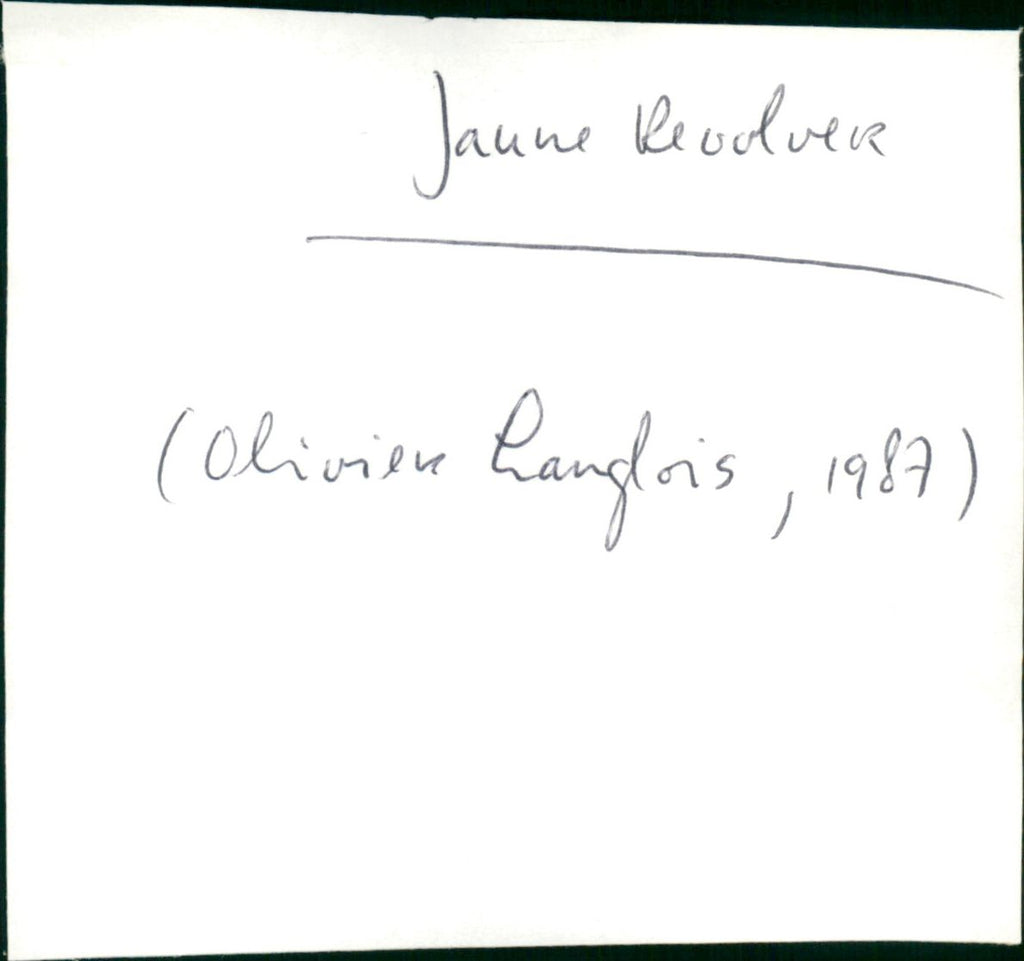 Jaune Revolver
(Olivier Langlois, 1987)